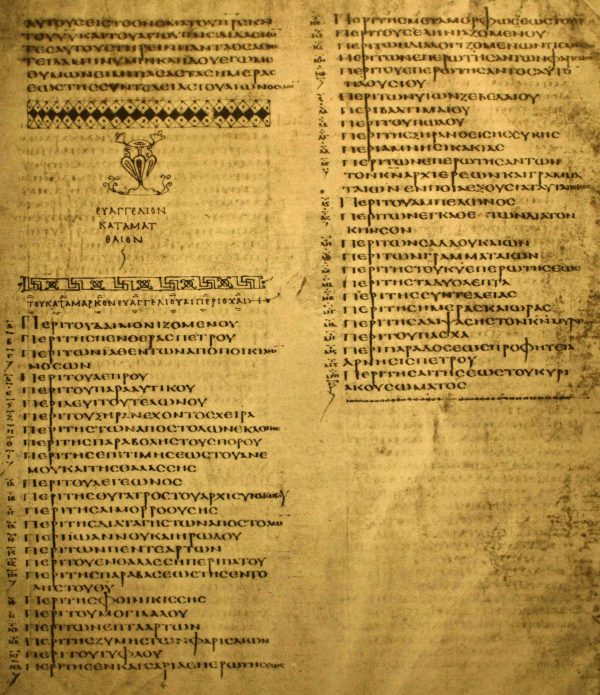 ΑΥΤΟΥϹΕΙϹΤΟΟΝΟΜΑΤΟΥΠΡϹΚΑΙ
ΤΟΥΥΥΚΑΙΤΟΥΑΓΙΟΥΠΝϹΔΙΔΑϹΚΟ
ΤΕϹΑΥΤΟΥϹΤΗΡΕΙΝΠΑΝΤΑΟϹΑΕΝΕ
ΤΕΙΛΑΜΗΝΥΜΙΝΚΑΙΙΔΟΥΕΓΩΜΕ
ΘΥΜΩΝΕΙΜΙΠΑϹΑϹΤΑϹΗΜΕΡΑϹ
ΕΩϹΤΗϹϹΥΝΤΕΛΕΙΑϹΤΟΥΑΙΩΝΟϹ
ΕΥΑΓΓΕΛΙΟΝ
ΚΑΤΑΜΑΤ
ΘΑΙΟΝ
ΤΟΥΚΑΤΑΜΑΡΚΟΝΕΥΑΓΓΕΛΙΟΥΑΙΠΕΡΙΟΧΑΙ
ΠΕΡΙΤΟΥΔΑΙΜΟΝΙΖΟΜΕΝΟΥ
ΠΕΡΙΤΗϹΠΕΝΘΕΡΑϹΠΕΤΡΟΥ
ΠΕΡΙΤΩΝΙΑΘΕΝΤΩΝΑΠΟΠΟΙΚΙΛΩΝ
ΝΟϹΩΝ
ΠΕΡΙΤΟΥΛΕΠΡΟΥ
ΠΕΡΙΤΟΥΠΑΡΑΛΥΤΙΚΟΥ
ΠΕΡΙΛΕΥΙΤΟΥΤΕΛΩΝΟΥ
ΠΕΡΙΤΟΥΞΗΡΑΝΕΧΟΝΤΟϹΧΕΙΡΑ
ΠΕΡΙΤΗϹΤΩΝΑΠΟϹΤΟΛΩΝΕΚΛΟΓΗϹ
ΠΕΡΙΤΗϹΠΑΡΑΒΟΛΗϹΤΟΥϹΠΟΡΟΥ
ΠΕΡΙΤΗϹΕΠΙΤΙΜΗϹΕΩϹΤΟΥΑΝΕ
ΜΟΥΚΑΙΤΗϹΘΑΛΑϹϹΗϹ
ΠΕΡΙΤΟΥΛΕΓΕΩΝΟϹ
ΠΕΡΙΤΗϹΘΥΓΑΤΡΟϹΤΟΥΑΡΧΙϹΥΝΑΓΩΓΟΥ
ΠΕΡΙΤΗϹΑΙΜΟΡΡΟΟΥϹΗϹ
ΠΕΡΙΤΗϹΔΙΑΤΑΓΗϹΤΩΝΑΠΟϹΤΟΛΩ
ΠΕΡΙΙΩΑΝΝΟΥΚΑΙΗΡΩΔΟΥ
ΠΕΡΙΤΩΝΠΕΝΤΕΑΡΤΩΝ
ΠΕΡΙΤΟΥΕΝΘΑΛΑϹϹΗΠΕΡΙΠΑΤΟΥ
ΠΕΡΙΤΗϹΠΑΡΑΒΑϹΕΩϹΤΗϹΕΝΤΟ
ΛΗϹΤΟΥΘΥ
ΠΕΡΙΤΗϹΦΟΙΝΙΚΙϹϹΗϹ
ΠΕΡΙΤΟΥΜΟΓΙΛΑΛΟΥ
ΠΕΡΙΤΩΝΕΠΤΑΑΡΤΩΝ
ΠΕΡΙΤΗϹΖΥΜΗϹΤΩΝΦΑΡΙϹΑΙΩΝ
ΠΕΡΙΤΟΥΤΥΦΛΟΥ
ΠΕΡΙΤΗϹΕΝΚΑΙϹΑΡΙΑΕΠΕΡΩΤΗϹΕΩϹ
ΠΕΡΙΤΗϹΜΕΤΑΜΟΡΦΩϹΕΩϹΤΟΥΙΥ
ΠΕΡΙΤΟΥϹΕΛΗΝΙΑΖΟΜΕΝΟΥ
ΠΕΡΙΤΩΝΔΙΑΛΟΓΙΖΟΜΕΝΩΝΤΙϹΜΕΙΖΩ
ΠΕΡΙΤΩΝΕΠΕΡΩΤΗϹΑΝΤΩΝΦΑΡΙϹΑΙΩ
ΠΕΡΙΤΟΥΕΠΕΡΩΤΗϹΑΝΤΟϹΑΥΤΟ
ΠΛΟΥϹΙΟΥ
ΠΕΡΙΤΩΝΥΙΩΝΖΕΒΕΔΑΙΟΥ
ΠΕΡΙΒΑΡΤΙΜΑΙΟΥ
ΠΕΡΙΤΟΥΠΩΛΟΥ
ΠΕΡΙΤΗϹΞΗΡΑΝΘΕΙϹΗϹϹΥΚΗϹ
ΠΕΡΙΑΜΝΗϹΙΚΑΚΙΑϹ
ΠΕΡΙΤΩΝΕΠΕΡΩΤΗϹΑΝΤΩΝ
ΤΟΝΚΝΑΡΧΙΕΡΕΩΝΚΑΙΓΡΑΜΜΑ
ΤΑΙΩΝΕΝΠΟΙΑΕΞΟΥϹΙΑΤΑΥΤΑΠΟΙΕΙϹ
ΠΕΡΙΤΟΥΑΜΠΕΛΩΝΟϹ
ΠΕΡΙΤΩΝΕΓΚΑΘΕΤΩΝΔΙΑΤΟΝ
ΚΗΝϹΟΝ
ΠΕΡΙΤΩΝϹΑΔΔΟΥΚΑΙΩΝ
ΠΕΡΙΤΩΝΓΡΑΜΜΑΤΑΙΩΝ
ΠΕΡΙΤΗϹΤΟΥΚΥΕΠΕΡΩΤΗϹΕΩϹ
ΠΕΡΙΤΗϹΤΑΔΥΟΛΕΠΤΑ
ΠΕΡΙΤΗϹϹΥΝΤΕΛΕΙΑϹ
ΠΕΡΙΤΗϹΗΜΕΡΑϹΚΑΙΩΡΑϹ
ΠΕΡΙΤΗϹΑΛΕΙΨΑϹΗϹΤΟΝΚΝΜΥΡΩ
ΠΕΡΙΤΟΥΠΑϹΧΑ
ΠΕΡΙΠΑΡΑΔΟϹΕΩϹΠΡΟΦΗΤΕΙΑ
ΑΡΝΗϹΙϹΠΕΤΡΟΥ
ΠΕΡΙΤΗϹΑΙΤΗϹΕΩϹΤΟΥΚΥΡΙ
ΑΚΟΥϹΩΜΑΤΟϹ